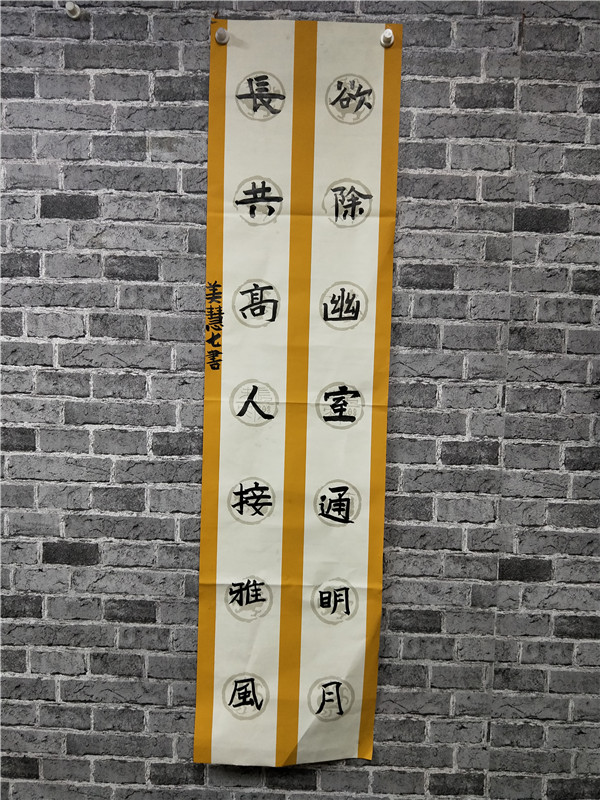 欲除幽室通明月
長共高人接雅風
美慧七書